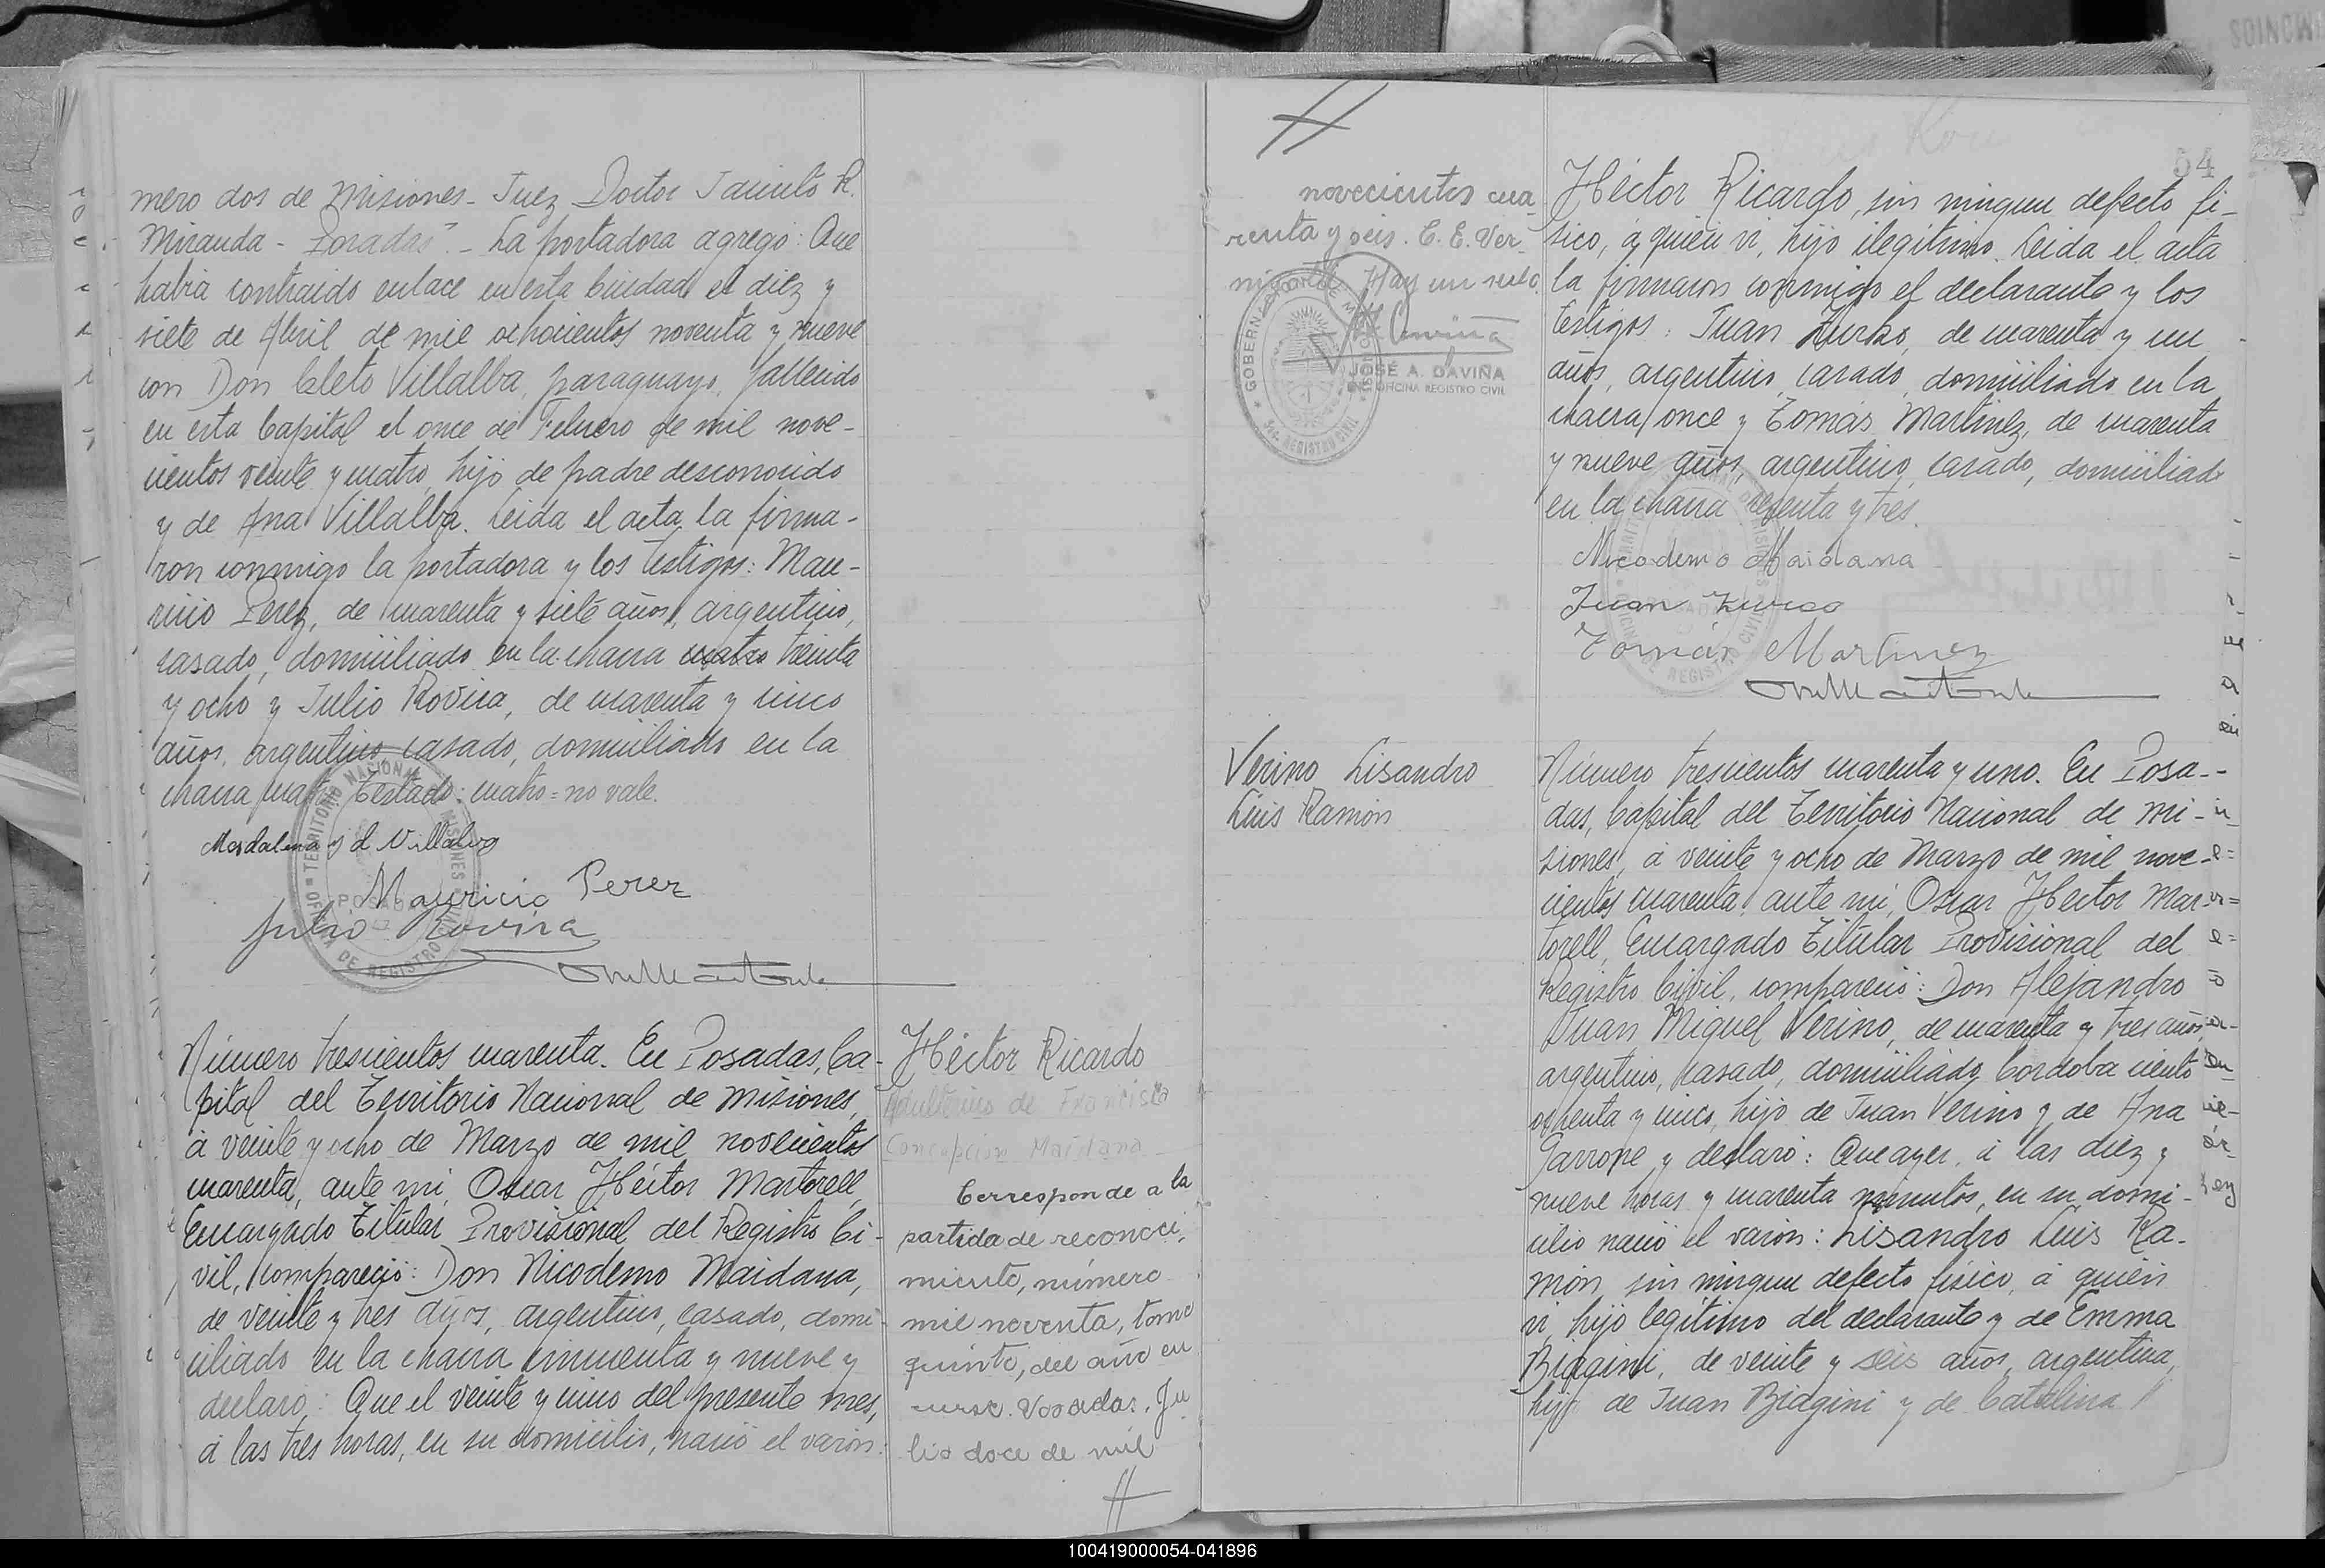 mero dos de Misiones - Juez Doctor Jacinto R.
Miranda - Posadas". - La portadora agregó: Que
habia contraido enlace en esta Ciudad el diez y
siete de Abril de mil ochocientos noventa y nueve
con Don Cleto Villalba, paraguayo, fallecido
en esta Capital el once de Febrero de mil nove-
cientos veinte y cuatro, hijo de padre desconocido
y de Ana Villalba. Leida el acta, la firma-
ron conmigo la portadora y los testigos: Mau-
ricio Perez, de cuarenta y siete años, argentino,
casado, domiciliado en la chacra cuatro treinta
y ocho y Julio Rovira, de cuarenta y cinco
años, argentino, casado, domiciliado en la
chacra cuatro. Testado: cuatro = no vale.
Magdalena y d Villalva
Mauricio Perez
Julio Rovira
TERRITORIO NACIONAL MISIONES
POSADAS
OFICINA DE REGISTRO CIVIL
Número trescientos cuarenta. En Posadas, Ca-
pital del Territorio Nacional de Misiones,
á veinte y ocho de Marzo de mil novecientos
cuarenta, ante mi, Oscar Héctor Martorell,
Encargado Titular Provisional del Registro Ci-
vil, compareció: Don Nicodemo Maidana,
de veinte y tres años, argentino, casado, domi-
ciliado en la chacra cincuenta y nueve y
declaró: Que el veinte y cinco del presente mes,
á las tres horas, en su domicilio, nació el varón:
Héctor Ricardo
Adulterino de Francisca
Concepción Maidana
Corresponde a la
partida de reconoci-
miento, número
mil noventa, tomo
quinto, del año en
curso. Posadas, Ju
lio doce de mil
novecientos cua-
renta y seis. C. E. Ver-
Hay un sello.
GOBERNACION DE MISIONES
JOSÉ A. DAVIÑA
OFICINA REGISTRO CIVIL
REGISTRO CIVIL
54
Héctor Ricardo, sin ningun defecto fi-
sico, á quien vi, hijo ilegitimo. Leida el acta
la firmaron conmigo el declarante y los
testigos: Juan Zurko, de cuarenta y un
años, argentino, casado, domiciliado en la
chacra once y Tomás Martinez, de cuarenta
y nueve años, argentino, casado, domiciliado
en la chacra sesenta y tres.
Nicodemo Maidana
Juan
Tomás Martinez
Verino Lisandro
Luis Ramón
Número trescientos cuarenta y uno. En Posa-
das, Capital del Territorio Nacional de Mi-
siones, á veinte y ocho de Marzo de mil nove-
cientos cuarenta, ante mi, Oscar Héctor Mar-
torell, Encargado Titular Provisional del
Registro Civil, compareció: Don Alejandro
Juan Miguel Verino, de cuarenta y tres años,
argentino, casado, domiciliado Cordoba ciento
ochenta y cinco, hijo de Juan Verino y de Ana
Garrone y declaró: Que ayer, á las diez y
nueve horas y cuarenta minutos, en su domi-
cilio nació el varón: Lisandro Luis Ra-
món, sin ningun defecto fisico, á quien
vi, hijo legitimo del declarante y de Emma
Biagini, de veinte y seis años, argentina,
hija de Juan Biagini y de Catalina
100419000054-041896